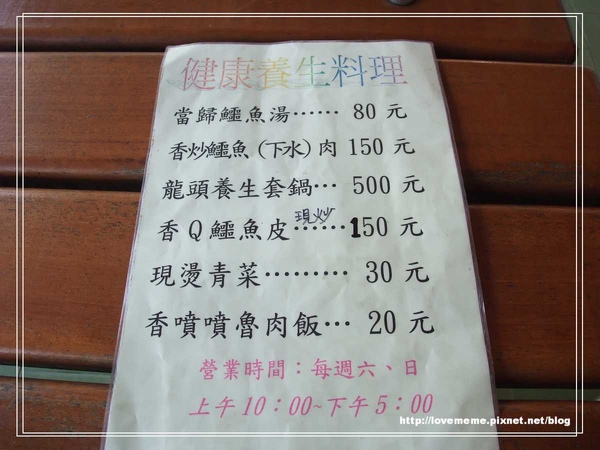 健康養生料理
當歸鱷魚湯…… 80 元
香炒鱷魚(下水)肉 150 元
龍頭養生套鍋… 500 元
香Q鱷魚皮現炒…… 150 元
現燙青菜……… 30 元
香噴噴魯肉飯… 20 元
營業時間：每週六、日
上午10：00~下午5：00
http://lovememe.pixnet.net/blog